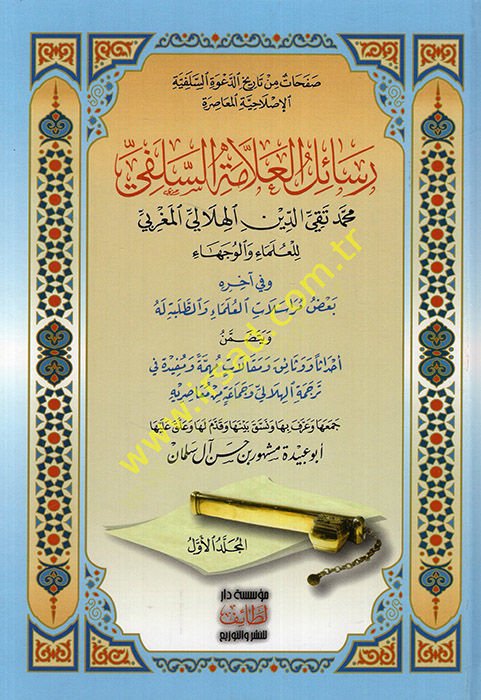 صَفَحَاتٌ مِنْ تَارِيخِ الدَّعْوَةِ السَّلَفِيَّةِ
الإِصْلَاحِيَّةِ المُعَاصِرَةِ
رَسَائِلُ العَلَّامَةِ السَّلَفِيِّ
مُحَمَّد تَقِيِّ الدِّينِ الهِلَالِيِّ المَغْرِبِيِّ
لِلْعُلَمَاءِ وَالوُجَهَاءِ
وَفِي آخِرِهِ
بَعْضُ مُرَاسَلَاتِ العُلَمَاءِ وَالطَّلَبَةِ لَهُ
وَيَتَضَمَّنُ
أَحْدَاثًا وَوَثَائِقَ وَمَقَالَاتٍ مُهِمَّةً وَمُفِيدَةً فِي
تَرْجَمَةِ الهِلَالِيِّ وَجَمَاعَةٍ مِنْ مُعَاصِرِيهِ
جَمَعَهَا وَعَرَّفَ بِهَا وَنَسَّقَ بَيْنَهَا وَقَدَّمَ لَهَا وَعَلَّقَ عَلَيْهَا
أَبُو عُبَيْدَةَ مَشْهُورُ بْنُ حَسَن آل سَلْمَان
المُجَلَّدُ الأَوَّلُ
مؤسسة دار
لطائف
للنشر والتوزيع
www.irsad.com.tr